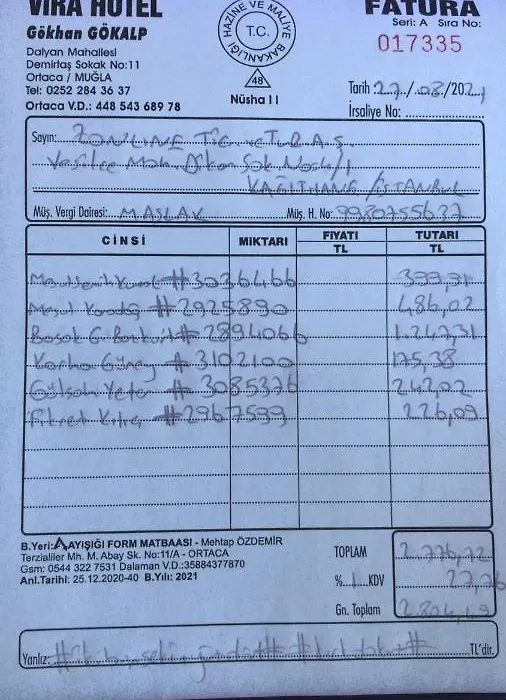 VİRA HOTEL
Gökhan GÖKALP
Dalyan Mahallesi
Demirtaş Sokak No:11
Ortaca / MUĞLA
Tel: 0252 284 36 37
Ortaca V.D.: 448 543 689 78
HAZİNE VE MALİYE BAKANLIĞI
T.C.
48
Nüsha II
FATURA
Seri: A Sıra No:
017335
Tarih :27/08/2021
İrsaliye No:
Sayın: ZONLINE TİC. A.Ş.
KAĞITHANE / İSTANBUL
Müş. Vergi Dairesi: MASLAK Müş. H. No: 9980755637
CİNSİ MİKTARI FİYATI TL TUTARI TL
#3036466 399,91
#2925890 486,02
#2894066 1.247,31
#3102100 175,38
Gülşah Yeter #3085376 242,02
Fikret Kılıç #2967599 226,09
B.Yeri: AYIŞIĞI FORM MATBAASI - Mehtap ÖZDEMİR
Terzialiler Mh. M. Abay Sk. No:11/A - ORTACA
Gsm: 0544 322 7531 Dalaman V.D.:35884377870
Anl.Tarihi: 25.12.2020-40 B.Yılı: 2021
TOPLAM 2.776,72
%1 KDV 27,76
Gn. Toplam
Yanlız: TL'dir.